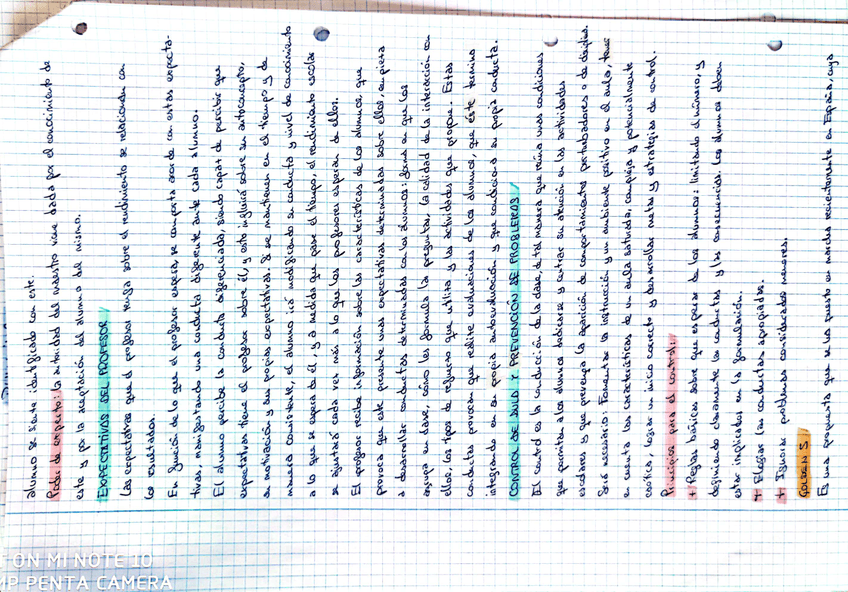 alumno se siente identificado con este.
Poder de experto: la autoridad del maestro viene dada por el conocimiento de
este y por la aceptación del alumno del mismo.
EXPECTATIVAS DEL PROFESOR
Las expectativas que el profesor tenga sobre el rendimiento se relacionan con
los resultados.
En función de lo que el profesor espera se comporta acorde con estas expecta-
tivas, manifestando una conducta diferente ante cada alumno.
El alumno percibe la conducta diferenciada, siendo capaz de percibir que
expectativas tiene el profesor sobre él, y esto influirá sobre su autoconcepto,
su motivación y sus propias expectativas. Si se mantienen en el tiempo y de
manera consistente, el alumno irá modificando su conducta y nivel de conocimiento
a lo que se espera de él, y a medida que pase el tiempo, el rendimiento escolar
se ajustará cada vez más a lo que los profesores esperan de ellos.
El profesor recibe información sobre las características de los alumnos, que
provoca que este presente unas expectativas determinadas sobre ellos, empieza
a desarrollar conductas determinadas con los alumnos: forma en que los
agrupa en clase, cómo les formula la preguntas, la calidad de la interacción con
ellos, los tipos de refuerzo que utiliza y las actividades que propone. Estas
conductas provocan que realice evaluaciones de los alumnos, que éste termina
integrando en su propia autoevaluación y que condiciona su propia conducta.
CONTROL DE AULA Y PREVENCIÓN DE PROBLEMAS
El control es la conducción de la clase, de tal manera que reúna unas condiciones
que permitan a los alumnos dedicarse y centrar su atención en las actividades
escolares y que prevenga la aparición de comportamientos perturbadores o de
Será necesario: Fomentar la instrucción y un ambiente positivo en el aula, tener
en cuenta las características de un aula saturada, compleja y potencialmente
caótica, lograr un inicio correcto y desarrollar metas y estrategias de control.
Principios para el control:
+ Reglas básicas sobre que esperar de los alumnos: limitando el número, y
definiendo claramente las conductas y las consecuencias. Los alumnos deben
estar implicados en la formulación.
+ Elogiar las conductas apropiadas.
+ Ignorar problemas considerados menores.
GOLDEN 5
Es una propuesta que se ha puesto en marcha recientemente en España, cuya
ON MI NOTE 10
MP PENTA CAMERA